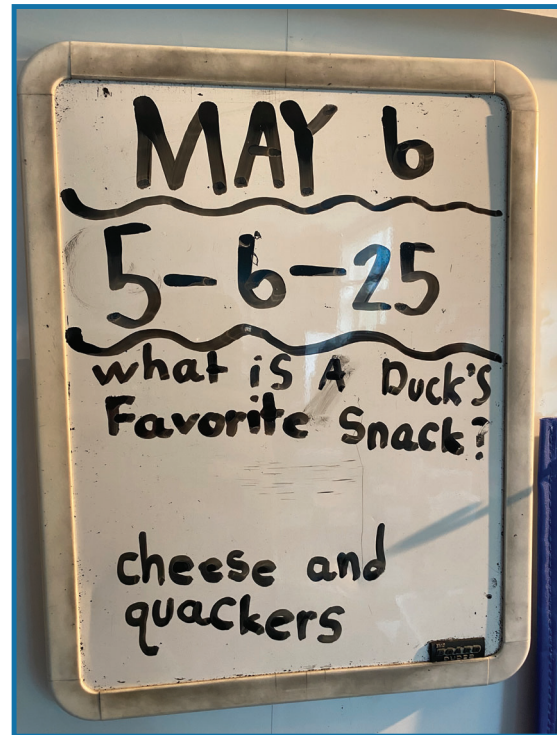 MAY 6
5-6-25
what is A Duck's
Favorite Snack?
cheese and
quackers